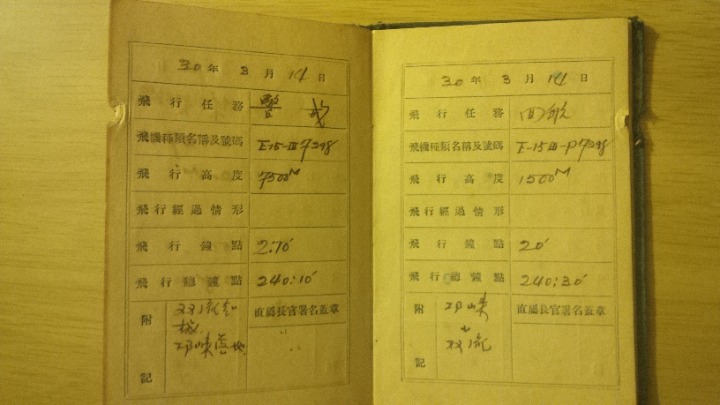 30年 3月 14日
飛行任務 警戒
飛機種類名稱及號碼 E-15-III P7298
飛行高度 7500M
飛行經過情形
飛行鐘點 2:10'
飛行總鐘點 240:10'
附記 双流起
邛崍落地
直屬長官署名蓋章
30年 3月 14日
飛行任務 回航
飛機種類名稱及號碼 E-15III-P7298
飛行高度 1500M
飛行經過情形
飛行鐘點 20'
飛行總鐘點 240:30'
附記 邛崍
双流
直屬長官署名蓋章